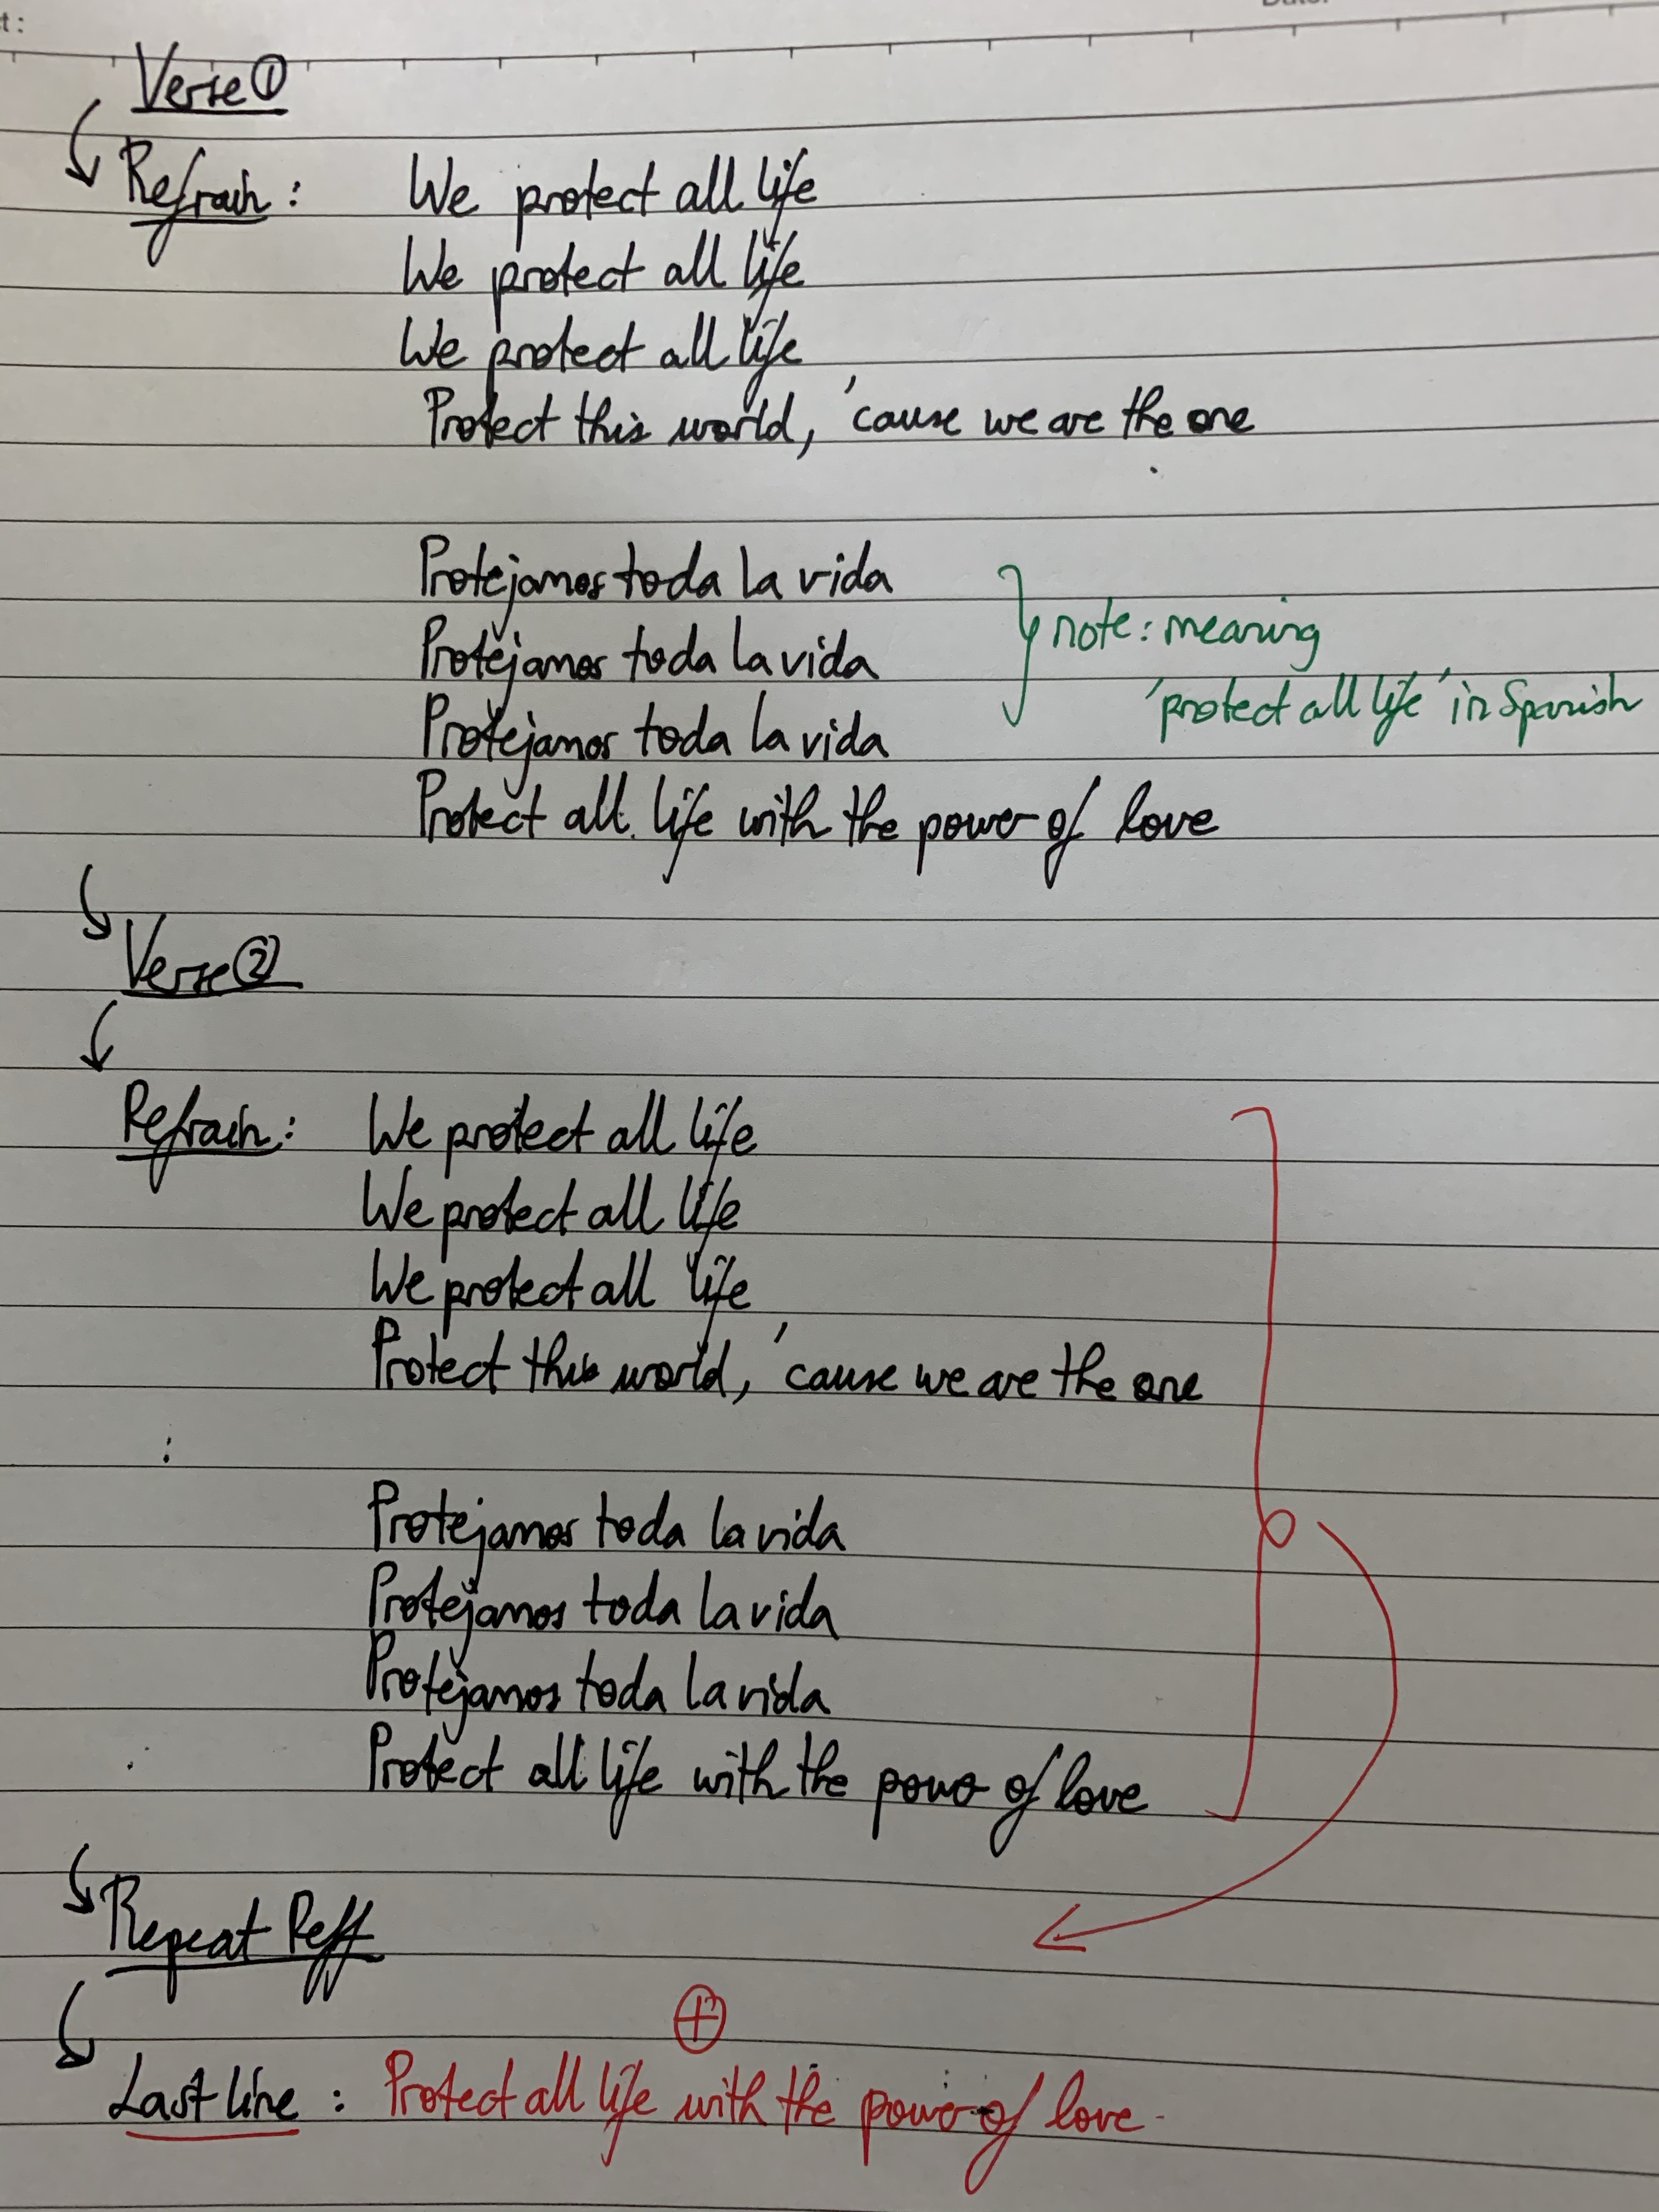 Verse ①
Refrain : We protect all life
We protect all life
We protect all life
Protect this world, 'cause we are the one
Protejamos toda la vida
Protejamos toda la vida
Protejamos toda la vida
note : meaning
'protect all life' in Spanish
Protect all life with the power of love
Verse ②
Refrain : We protect all life
We protect all life
We protect all life
Protect this world, 'cause we are the one
Protejamos toda la vida
Protejamos toda la vida
Protejamos toda la vida
Protect all life with the power of love
Repeat Reff
+
Last line : Protect all life with the power of love.